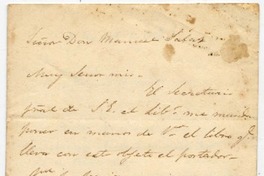 Señor Don Manuel Salas
Muy Señor mio.
El Secretario
gral de S.E. el Libr. me manda
poner en manos de V. el libro q.
lleva con este objeto el portador